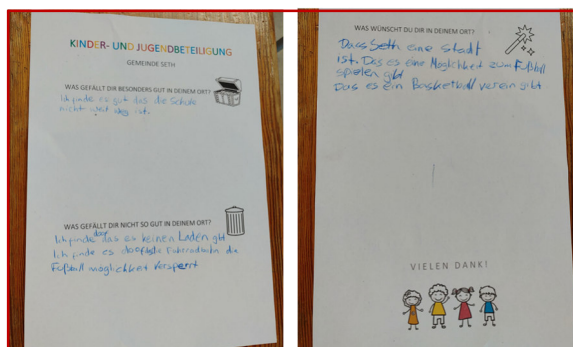 KINDER- UND JUGENDBETEILIGUNG
GEMEINDE SETH
WAS GEFÄLLT DIR BESONDERS GUT IN DEINEM ORT?
Ich finde es gut das die Schule
nicht weit weg ist.
WAS GEFÄLLT DIR NICHT SO GUT IN DEINEM ORT?
Ich finde doof das es keinen Laden gibt
Ich finde es doof die Fahrradbahn die
Fußball möglichkeit versperrt
WAS WÜNSCHT DU DIR IN DEINEM ORT?
Dass Seth eine Stadt
ist. Das es eine Möglichkeit zum Fußball
spielen gibt
Das es ein Basketball verein gibt
VIELEN DANK!